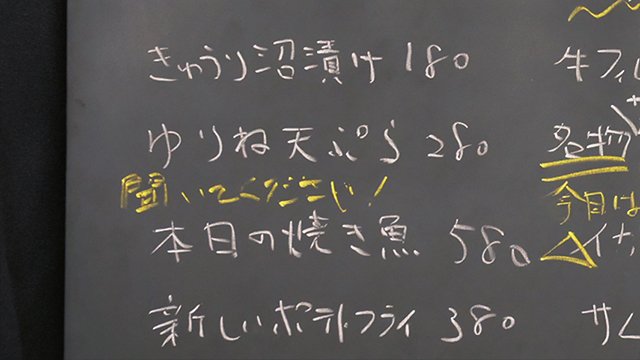 きゅうり沼漬け 180
牛フィ
ゆりね天ぷら 280
名物
聞いてください!
今日は
本日の焼き魚 580
イナ
新しいポテトフライ 380
サム